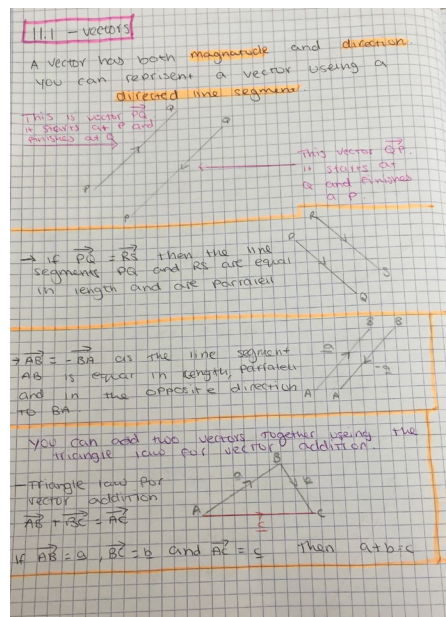 11.1 - vectors
A vector has both magnatude and direction.
you can reprisent a vector useing a
directed line segment
This is vector PQ
it starts at P and
finishes at Q
Q
P
Q
P
This vector QP.
it starts at
Q and finishes
a P.
→ if PQ = RS then the line
segments PQ and RS are equal
in length and are parralell
R
P
S
Q
→ AB = -BA as the line segment
AB is equal in length, parralell
and in the opposite direction
to BA.
B
B
a
-a
A
A
you can add two vectors together useing the
triangle law for vector addition.
- Triangle law for
vector addition
AB + BC = AC
B
a
b
A
C
c
if AB = a, BC = b and AC = c Then a+b=c